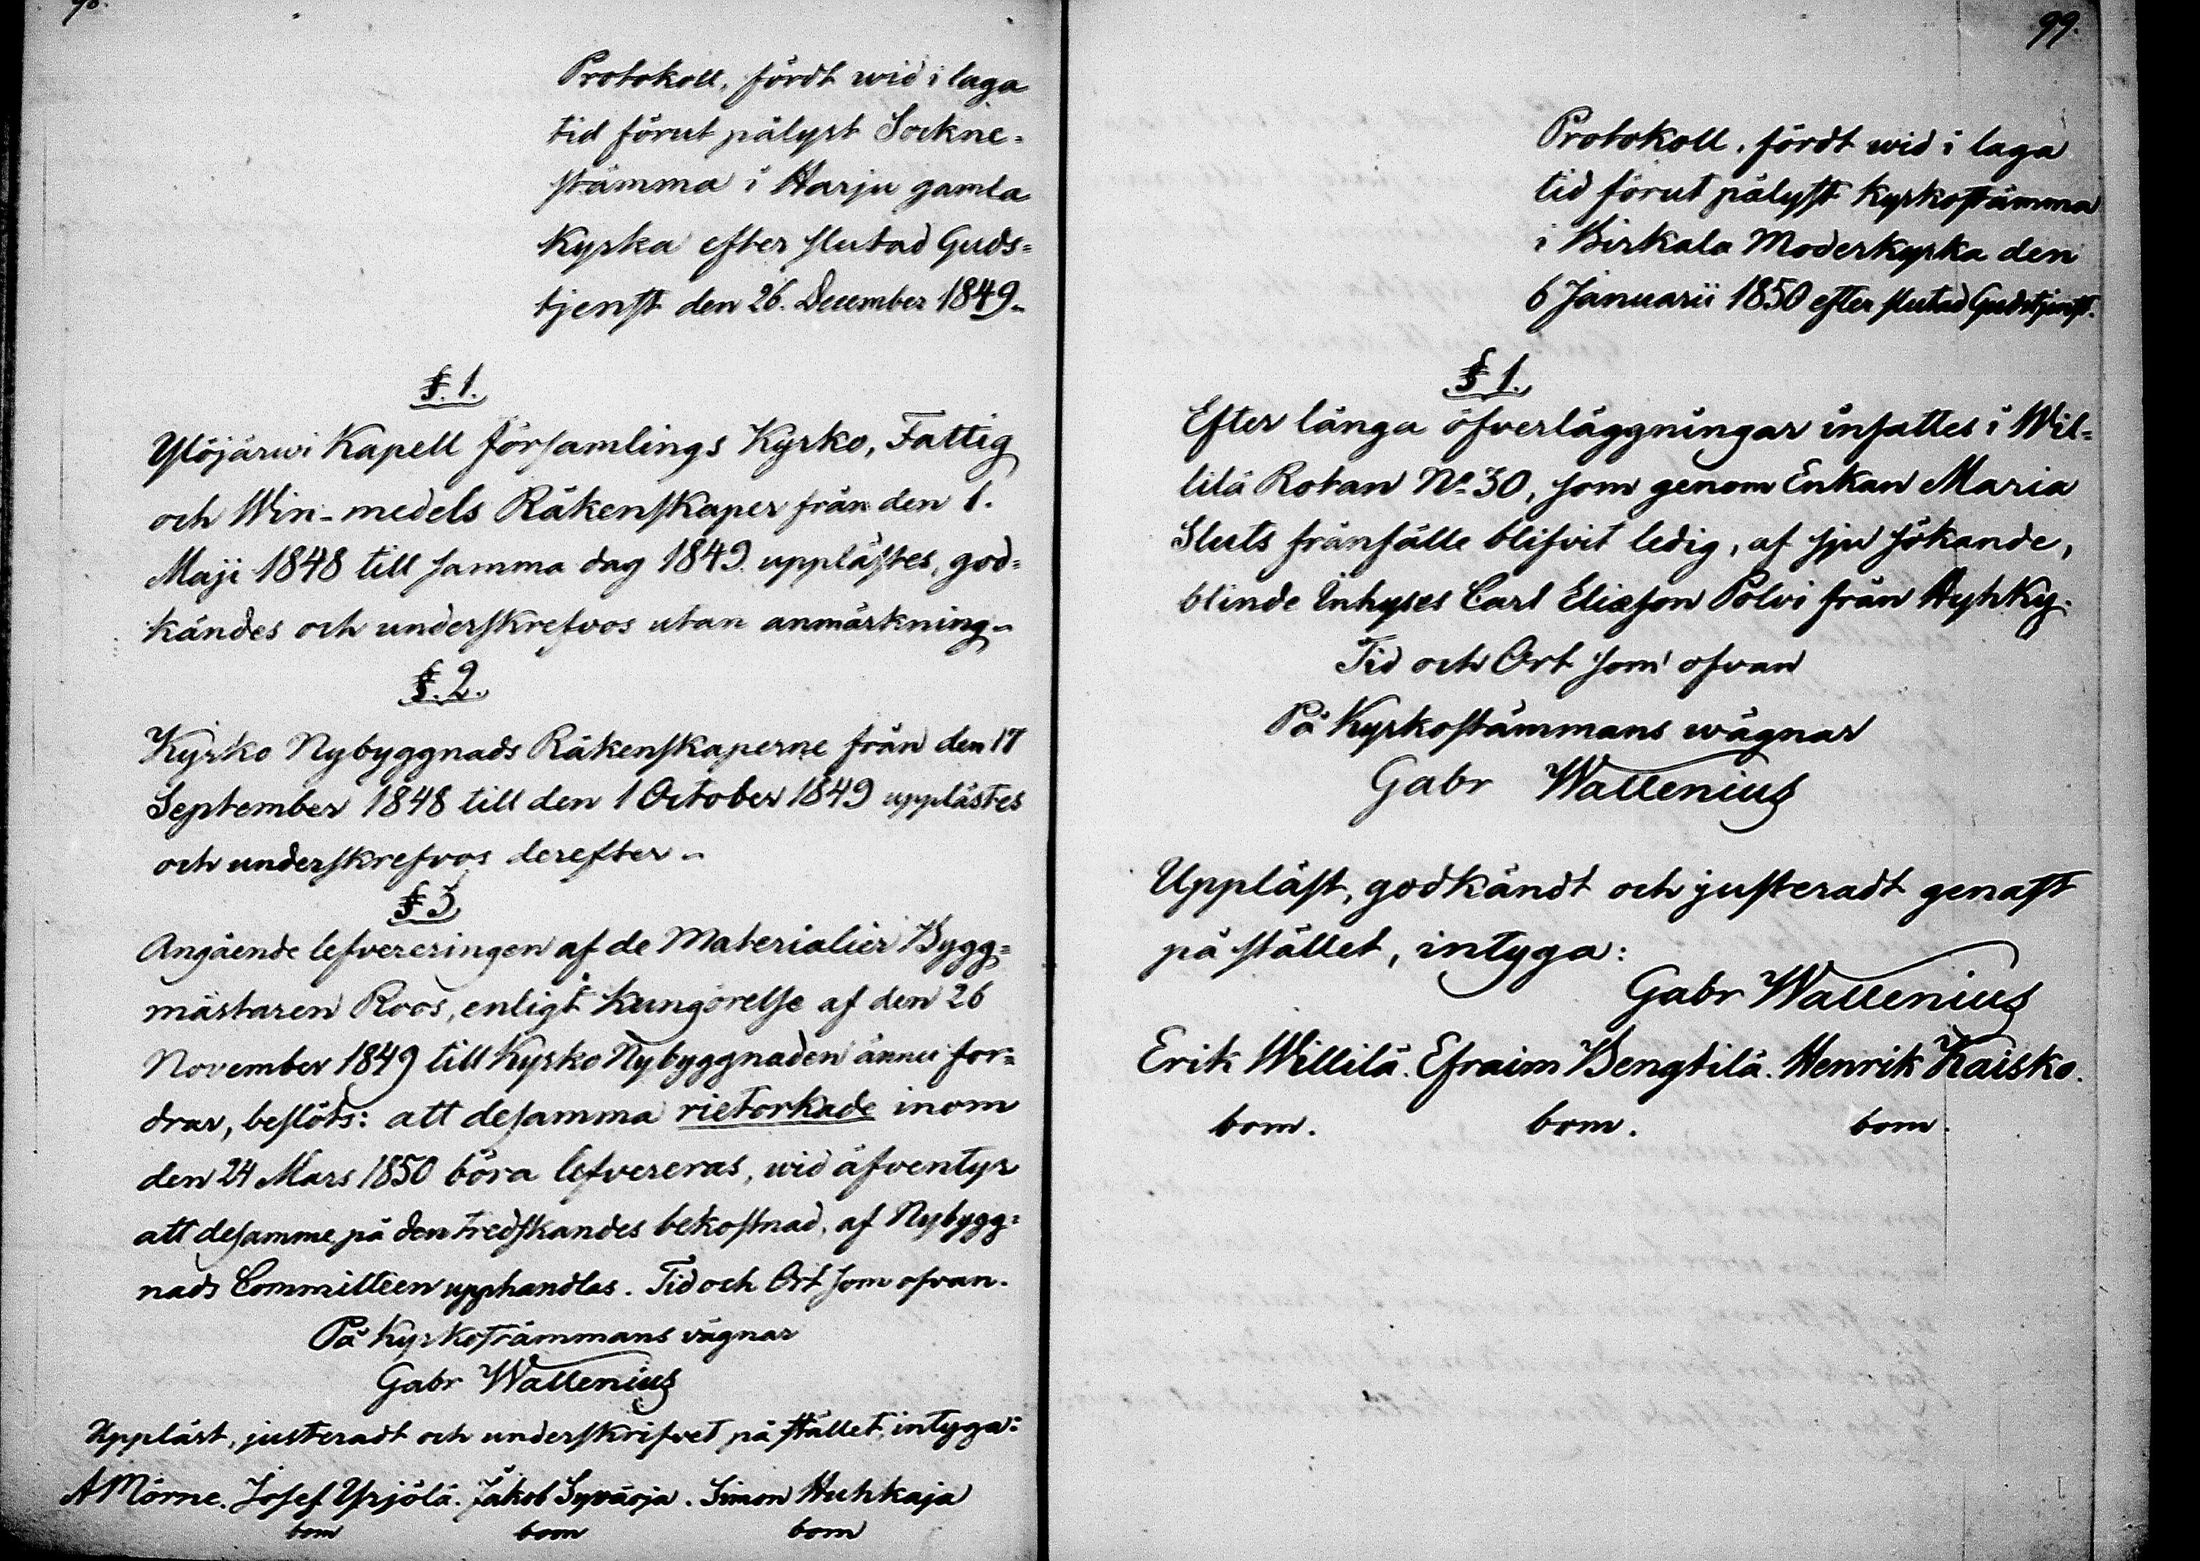 98.
Protokoll, fördt wid i laga
tid förut pålyst Sockne-
stämma i Harju gamla
Kyrka efter slutad Guds-
tjenst den 26. December 1849.
§. 1.
Ylöjärwi Kapell församlings Kyrko, Fattig
och Win-medels Räkenskaper från den 1.
Maji 1848 till samma dag 1849. upplästes, god-
kändes och underskrefvos utan anmärkning.
§. 2.
Kyrko Nybyggnads Räkenskaperne från den 17
September 1848 till den 1 October 1849 upplästes
och underskrefvos derefter.
§ 3
Angående lefvereringen af de Materialier Bygg-
mästaren Roos, enligt kungörelse af den 26
November 1849 till Kyrko Nybyggnaden ännu for-
drar, beslöts: att desamma rietorkade inom
den 24 Mars 1850 böra lefvereras, wid äfventyr
att desamme på den tredskandes bekostnad, af Nybygg-
nads Committéen upphandlas. Tid och Ort som ofvan.
På Kyrkostämmans vägnar
Gabr Wallenius
Uppläst, justeradt och underskrifvet på stället, intyga:
A Mörne. Josef Yrjölä. Jakob Syväoja. Simon Huhkaja
bom bom bom
99.
Protokoll, fördt wid i laga
tid förut pålyst Kyrkostämma
i Birkala Moderkyrka den
6 Januarii 1850 efter slutad Gudstjenst.
§ 1.
Efter långa öfverläggningar insattes i Wil-
lilä Rotan No 30, som genom Enkan Maria
Sluts frånfälle blifvit ledig, af sju sökande,
blinde Inhyses Carl Eliasson Polvi från Hyhky.
Tid och Ort som ofvan
På Kyrkostämmans wägnar
Gabr Wallenius
Uppläst, godkändt och justeradt genast
på stället, intyga:
Gabr Wallenius
Erik Willilä. Efraim Bengtilä. Henrik Kaisko.
bom. bom. bom.